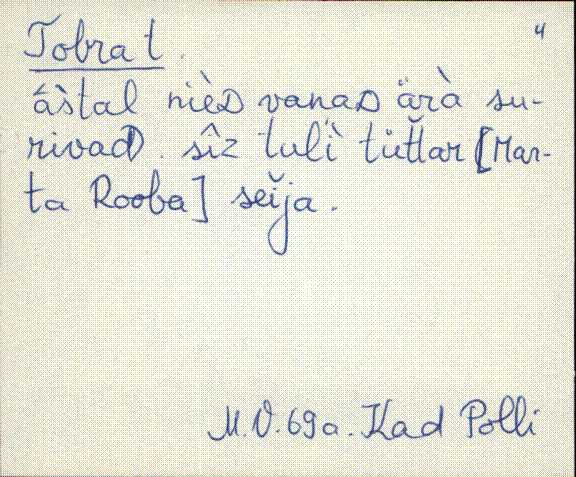 4
Tobra t.
áàstal nièᴅ vanaᴅ ärà su-
rivaᴅ. sîz tulì tüt̆tar [Mar-
ta Rooba] seĭja.
M.V. 69a. Kad Polli